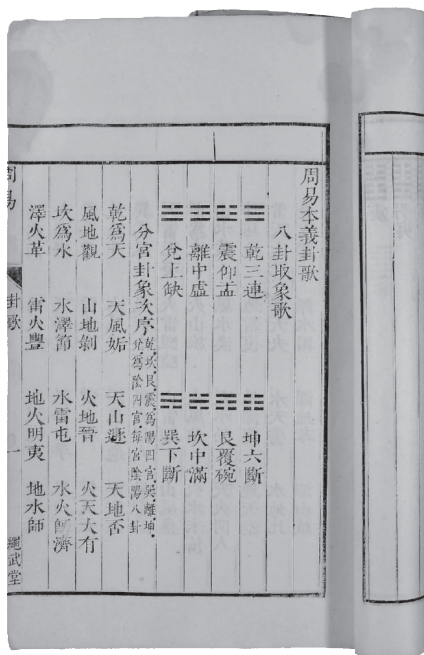 周易本義卦歌
八卦取象歌
☰ 乾三連 ☷ 坤六斷
☳ 震仰盂 ☶ 艮覆碗
☲ 離中虛 ☵ 坎中滿
☱ 兌上缺 ☴ 巽下斷
分宮卦象次序 乾、坎、艮、震、爲陽四宮、巽、離、坤、兌、爲陰四宮、每宮陰陽八卦
乾爲天 天風姤 天山遯 天地否
風地觀 山地剝 火地晉 火天大有
坎爲水 水澤節 水雷屯 水火既濟
澤火革 雷火豐 地火明夷 地水師
周易 卦歌 一 繩武堂